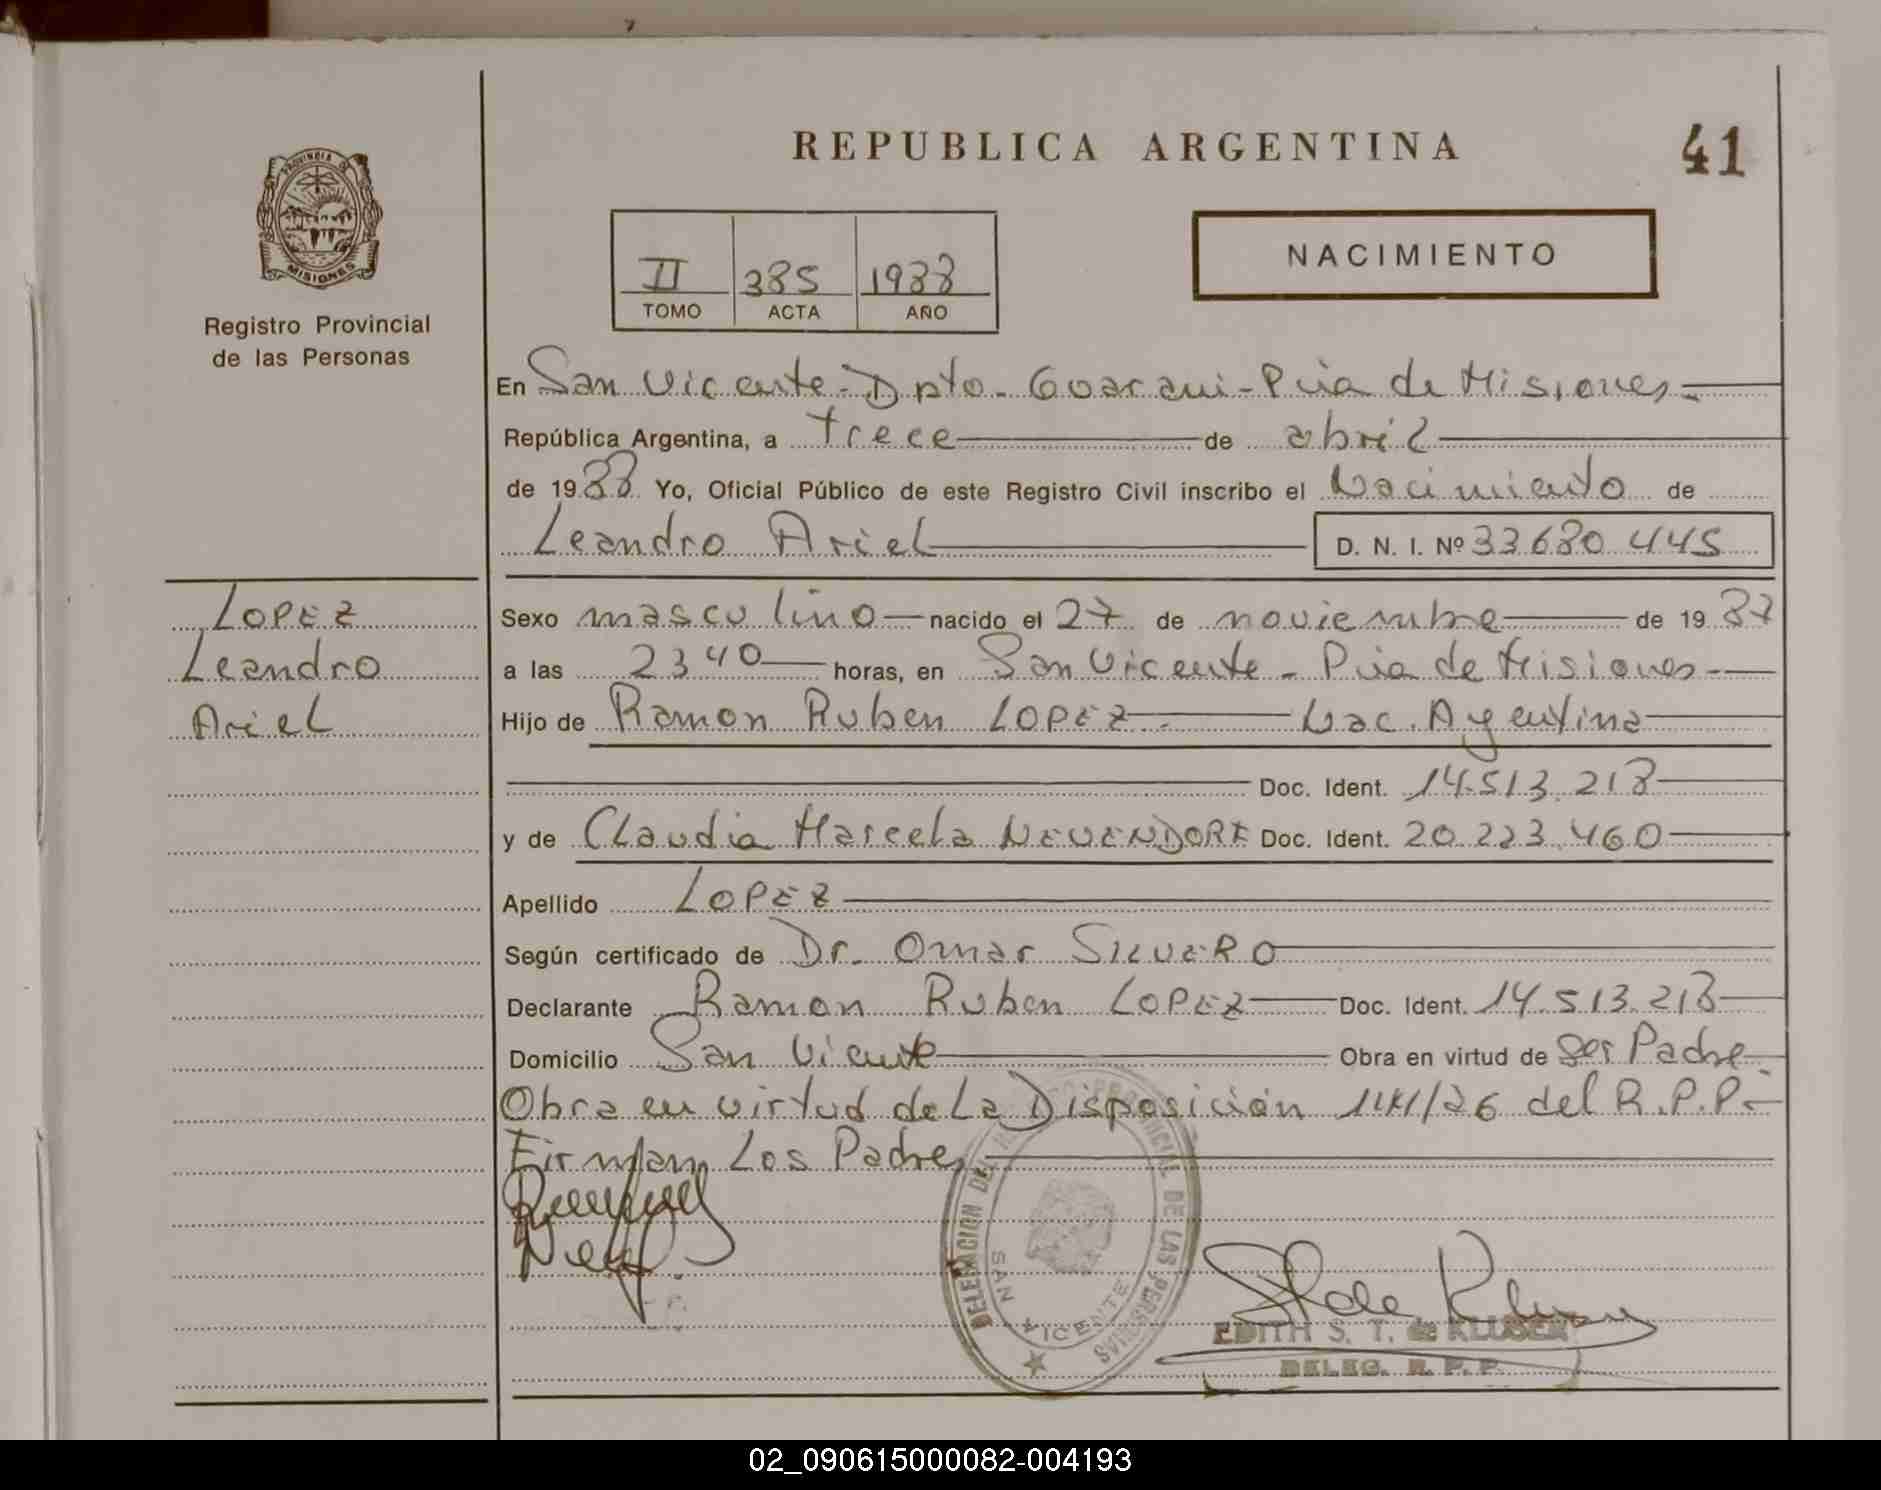 REPUBLICA ARGENTINA
41
PROVINCIA DE
MISIONES
Registro Provincial
de las Personas
II 385 1988
TOMO ACTA AÑO
NACIMIENTO
En San Vicente - Dpto - Guarani - Pcia de Misiones
República Argentina, a trece de abril
de 1988 Yo, Oficial Público de este Registro Civil inscribo el Nacimiento de
Leandro Ariel D. N. I. Nº 33680445
LOPEZ
Leandro
Ariel
Sexo masculino nacido el 27 de noviembre de 1987
a las 23 40 horas, en San Vicente - Pcia de Misiones
Hijo de Ramon Ruben LOPEZ - Nac. Argentina
Doc. Ident. 14.513.218
y de Claudia Marcela NEUENDORF Doc. Ident. 20.223.460
Apellido LOPEZ
Según certificado de Dr. Omar SILVERO
Declarante Ramon Ruben LOPEZ Doc. Ident. 14.513.218
Domicilio San Vicente Obra en virtud de Ser Padre
Obra en virtud de La Disposición del R.P.P.
Firman Los Padres
DELEGACION DEL REGISTRO PROVINCIAL DE LAS PERSONAS
SAN VICENTE
EDITH S. T. de KLUSER
DELEG. R. P. P.
02_090615000082-004193